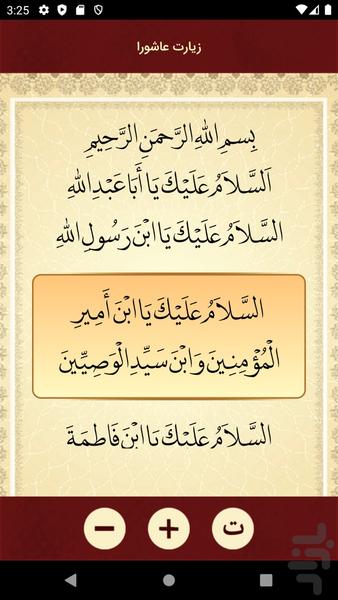 3:25
زیارت عاشورا
بِسمِ اللهِ الرَّحمَنِ الرَّحِيمِ
اَلسَّلاَمُ عَلَيْكَ يَا أَبَا عَبْدِ اللهِ
السَّلاَمُ عَلَيْكَ يَا ابْنَ رَسُولِ اللهِ
السَّلاَمُ عَلَيْكَ يَا ابْنَ أَمِيرِ
الْمُؤْمِنِينَ وَ ابْنَ سَيِّدِ الْوَصِيِّينَ
السَّلاَمُ عَلَيْكَ يَا ابْنَ فَاطِمَةَ
− + ت
بازار